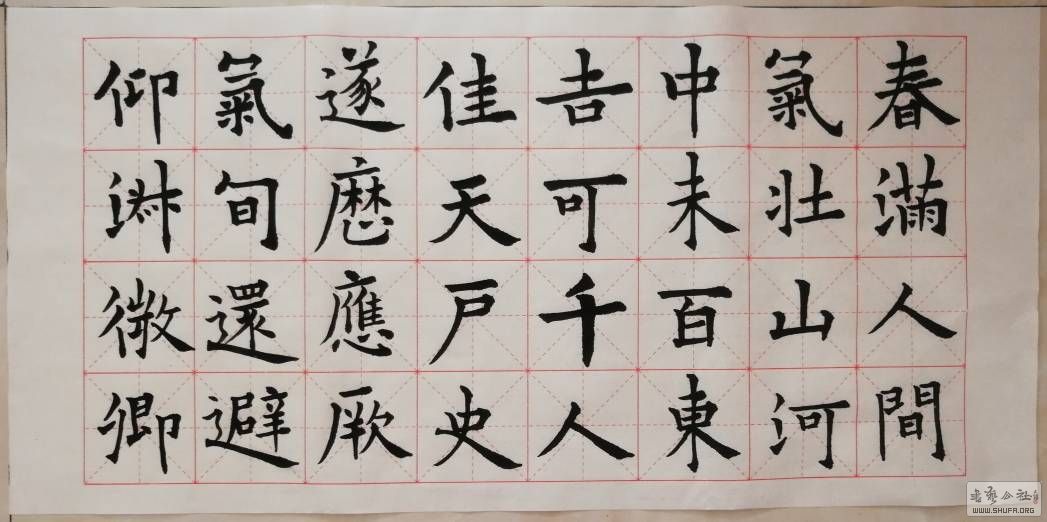 春滿人間
氣壯山河
中未百東
吉可千人
佳天戸史
遂應厥
氣旬還避
仰微卿
書藝公社
WWW.SHUFA.ORG